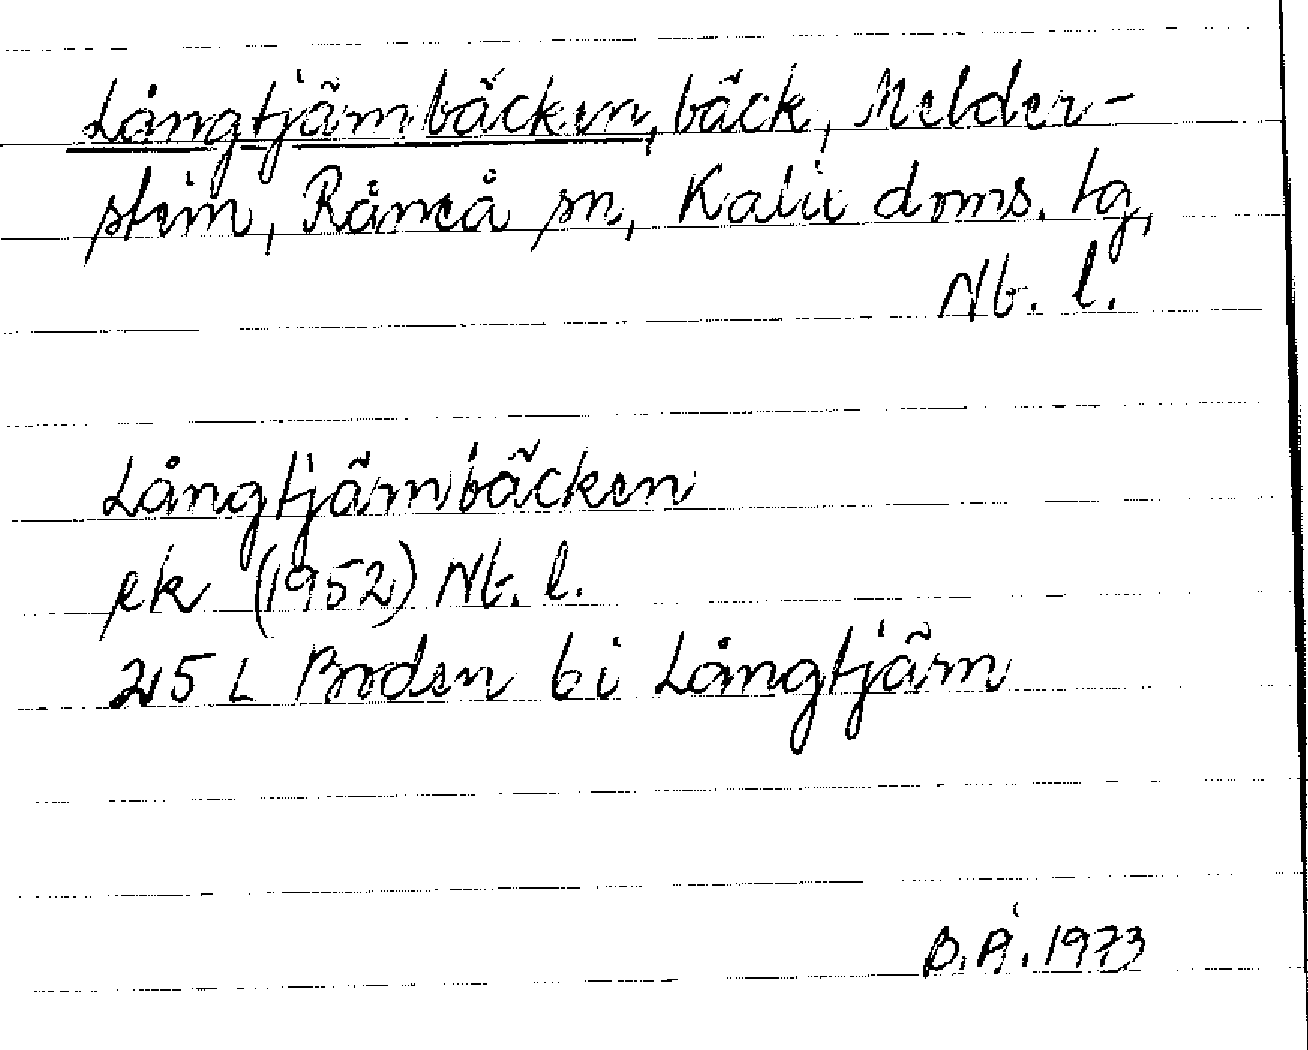 Långtjärnbäcken, bäck, Melder-
stein, Råneå sn, Kalix doms. tg,
Nb. l.
Långtjärnbäcken
ek (1952) Nb. l.
25 L Boden 6 i Långtjärn
B.Å. 1973